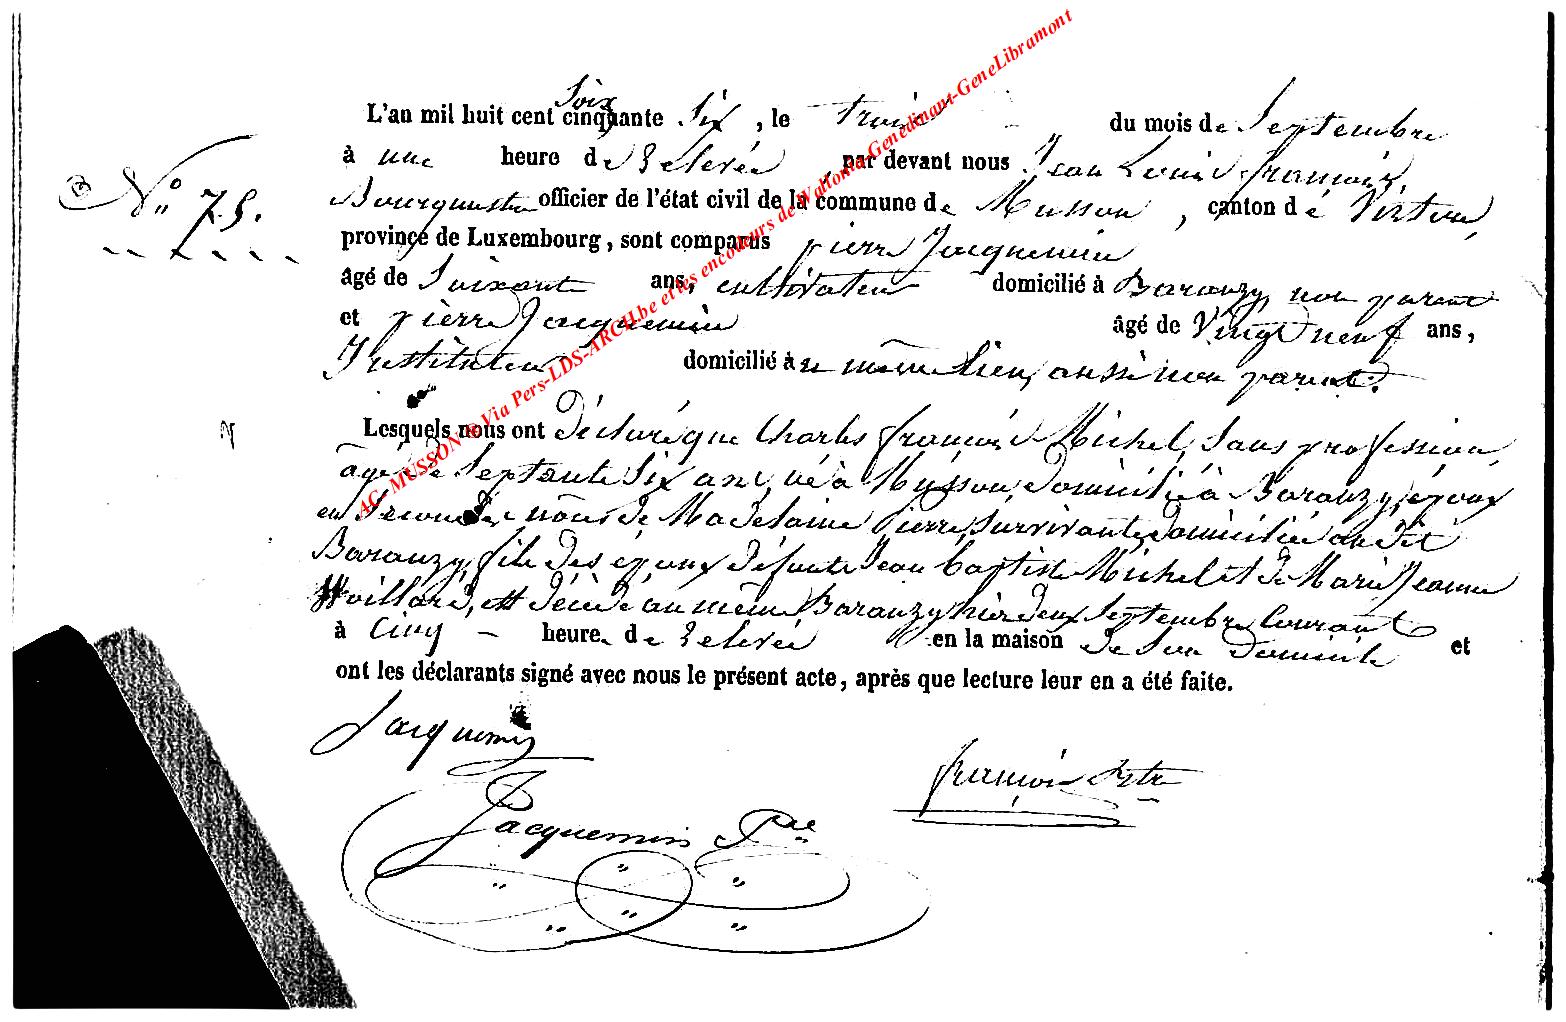 L'an mil huit cent cinquante Soix Six, le trois du mois de Septembre
à une heure de relevée, par devant nous Jean Louis françois,
N° 75.
Bourgmestre officier de l'état civil de la commune de Musson, canton de Virton,
province de Luxembourg, sont comparus pierre Jacquemin
âgé de Soixante ans, cultivateur domicilié à Baranzy, non parent
et pierre Jacquemin âgé de Vingt neuf ans,
Instituteur domicilié au même lieu, aussi non parent.
Lesquels nous ont déclaré que Charles françois Michel, Sans profession,
âgé de Septante Six ans, né à Musson, domicilié à Baranzy, époux
en Secondes nôces de Madelaine Pierre, Survivante, domiciliée au dit
Baranzy, fils des époux défunts Jean baptiste Michel et de Marie Jeanne
Woillard, est décédé au même Baranzy hier deux Septembre Courant
à Cinq heure de relevée en la maison de Son domicile et
ont les déclarants signé avec nous le présent acte, après que lecture leur en a été faite.
Jacquemin
françois Bstre
Jacquemin Pre
AC-MUSSON ® Via Pers-LDS-ARCH.be et les encodeurs de Wallonia-Genedinant-GeneLibramont